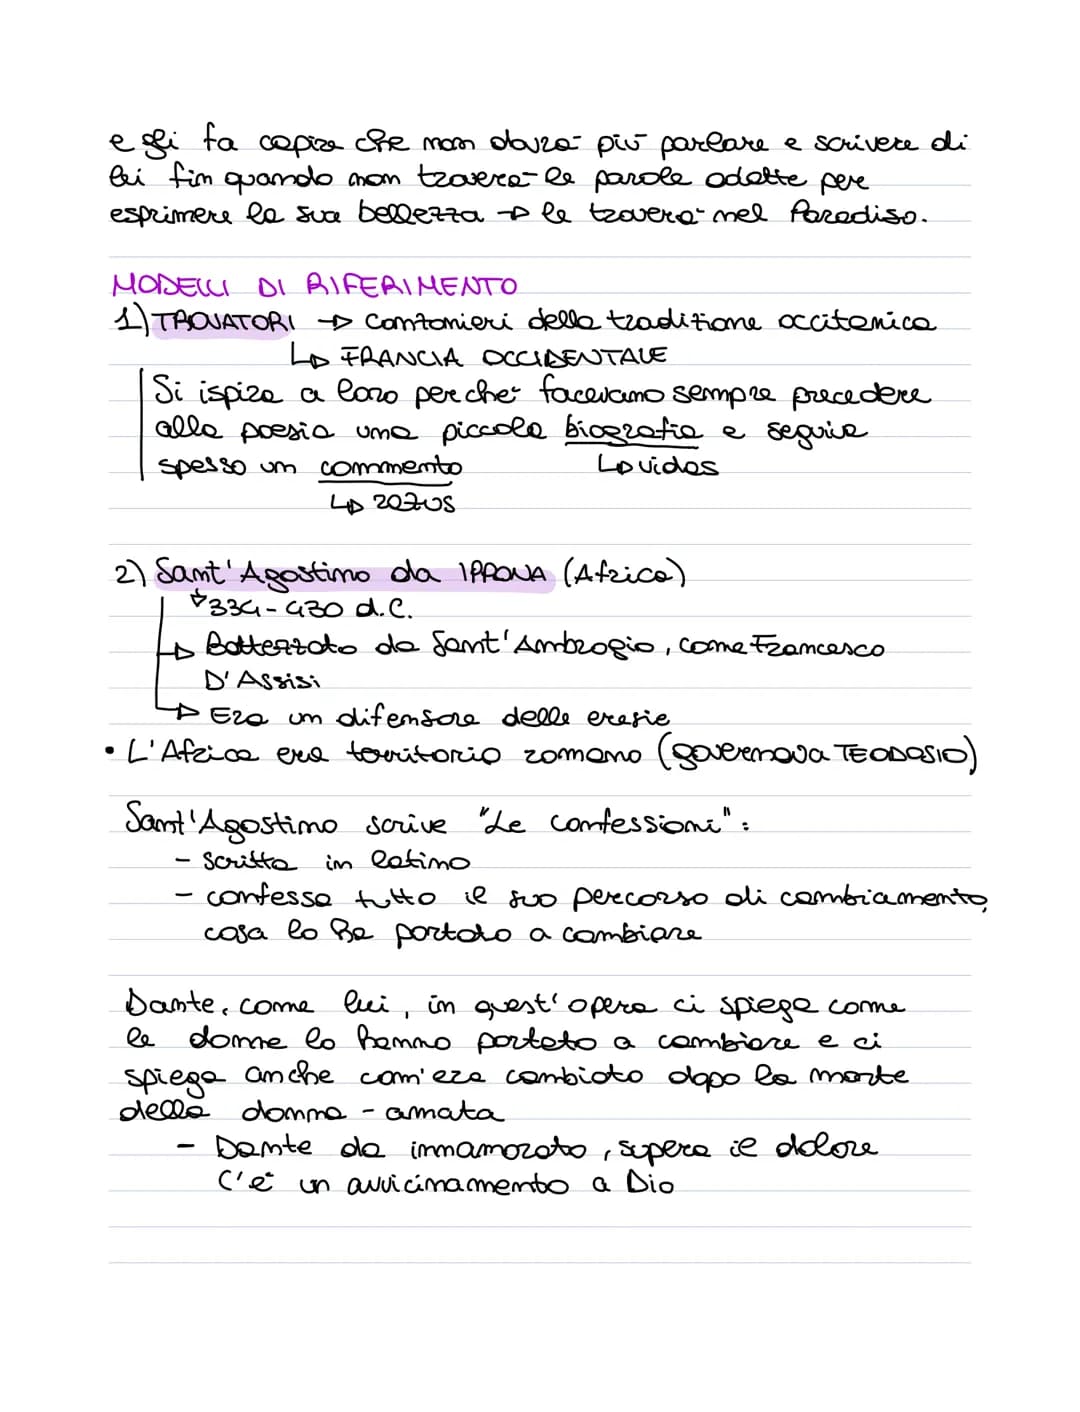 e gli fa capire che non dovrà più parlare e scrivere di
lei fin quando non troverà le parole adatte per
esprimere la sua bellezza → le troverà nel Paradiso.
MODELLI DI RIFERIMENTO
1) TROVATORI → Canzonieri della tradizione occitanica
↳ FRANCIA OCCIDENTALE
Si ispira a loro perchè facevano sempre precedere
alla poesia una piccola biografia e seguire
spesso un commento ↳ vidas
↳ razos
2) Sant'Agostino da IPPONA (Africa)
334-430 d.C.
→ Battezzato da Sant'Ambrogio, come Francesco
D'Assisi
→ Era un difensore delle eresie
• L'Africa era territorio romano (governava TEODOSIO)
Sant'Agostino scrive "Le confessioni":
- scritta in latino
- confessa tutto il suo percorso di cambiamento,
cosa lo ha portato a cambiare
Dante, come lui, in quest'opera ci spiega come
le donne lo hanno portato a cambiare e ci
spiega anche com'era cambiato dopo la morte
della donna - amata
- Dante da innamorato, supera il dolore
C'è un avvicinamento a Dio